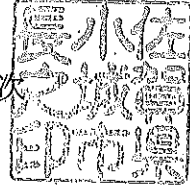 佐賀県
小城市
長之印